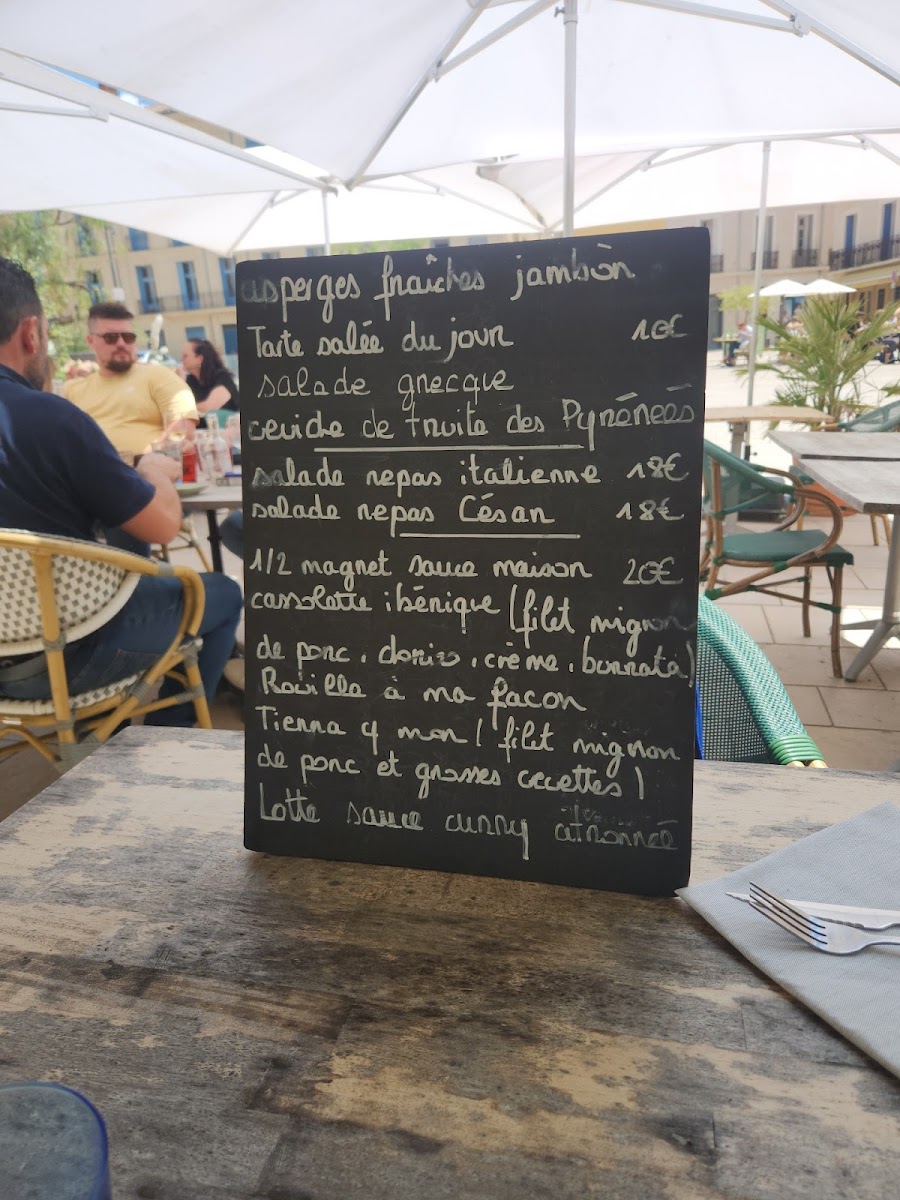 asperges fraîches jambon
Tarte salée du jour 10€
salade grecque
ceviche de truite des Pyrénées
salade repas italienne 18€
salade repas César 18€
1/2 magret sauce maison 20€
cassolette ibérique (filet mignon
de porc, chorizo, crème, burrata)
Rouille à ma façon
Tierra y mar (filet mignon
de porc et grosses crevettes)
Lotte sauce curry citronnée